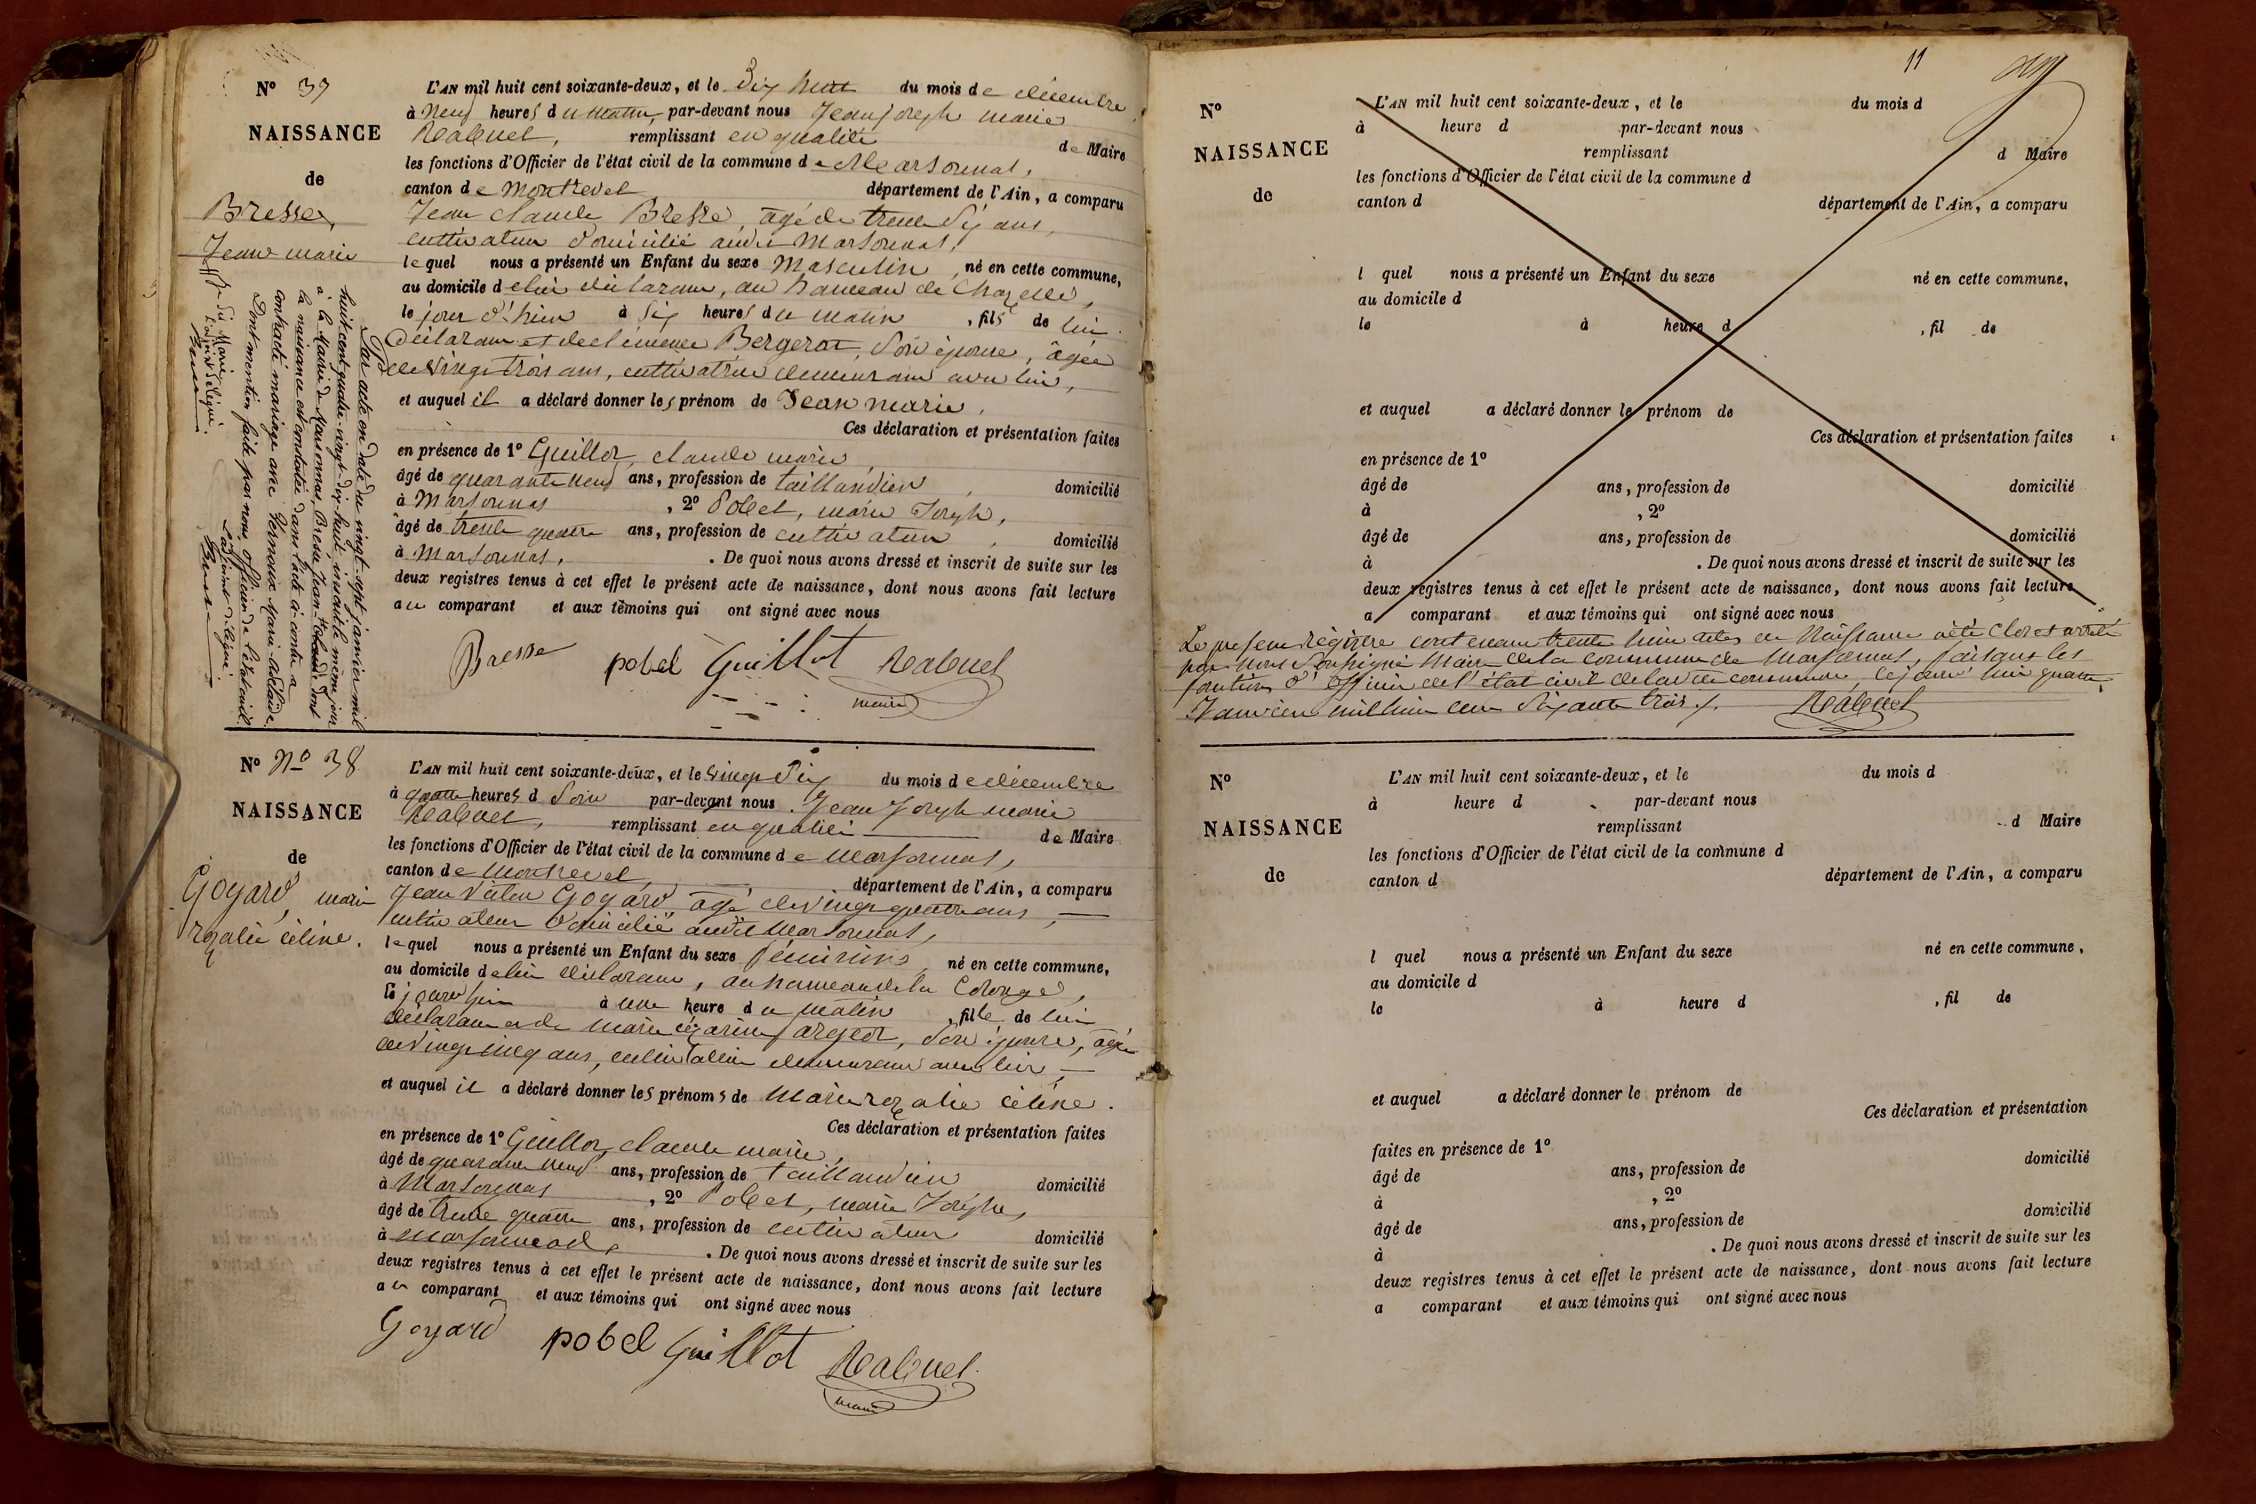 Nº 37
NAISSANCE
de
Bresse,
Jean marie
L'AN mil huit cent soixante-deux, et le Dix huit du mois de décembre
à neuf heures du matin, par-devant nous Jean joseph marie
Rabuel, remplissant en qualité de Maire
les fonctions d'Officier de l'état civil de la commune de Marsonnas,
canton de Montrevel département de l'Ain, a comparu
Jean claude Bresse, âgé de trente six ans,
cultivateur domicilié audit Marsonnas,
lequel nous a présenté un Enfant du sexe Masculin, né en cette commune,
au domicile de lui déclarant, au hameau de Chazelle,
le jour d'hier à six heures du matin, fils de lui
déclarant et de clémence Bergerot, son épouse, âgée
de vingt trois ans, cultivatrice demeurant avec lui,
et auquel il a déclaré donner les prénom de Jean marie,
Ces déclaration et présentation faites
en présence de 1º Guillot, claude marie,
âgé de quarante neuf ans, profession de taillandier, domicilié
à Marsonnas, 2º Pobel, marie Joseph,
âgé de trente quatre ans, profession de cultivateur, domicilié
à Marsonnas. De quoi nous avons dressé et inscrit de suite sur les
deux registres tenus à cet effet le présent acte de naissance, dont nous avons fait lecture
au comparant et aux témoins qui ont signé avec nous
Bresse pobel Guillot Rabuel
maire
Par acte en date du vingt-sept janvier mil
huit cent quatre-vingt-dix-huit, inscrit le même jour
à la Mairie de Marsonnas, Bresse Jean-Marie dont
la naissance est constatée dans l'acte ci-contre a
contracté mariage avec Vernoux Marie Adélaïde
Dont mention faite par nous officier de l'état civil
L'adjoint délégué.
Nº Nº 38
NAISSANCE
de
Goyard, marie
rozalie céline.
L'AN mil huit cent soixante-deux, et le vingt six du mois de décembre
à quatre heures d soir par-devant nous Jean Joseph marie
Rabuel, remplissant en qualité de Maire
les fonctions d'Officier de l'état civil de la commune de Marsonnas,
canton de Montrevel, département de l'Ain, a comparu
Jean Goyard âgé de vingt quatre ans,
cultivateur domicilié audit Marsonnas,
lequel nous a présenté un Enfant du sexe féminin, né en cette commune,
au domicile de lui déclarant, au hameau de la Colonge,
le jour à une heure du matin, fille de lui
déclarant et de marie cézarine fargeot, son épouse, âgée
de vingt cinq ans, demeurant avec lui,
et auquel il a déclaré donner les prénoms de Marie rozalie céline.
Ces déclaration et présentation faites
en présence de 1º Guillot, claude marie,
âgé de quarante neuf ans, profession de taillandier domicilié
à Marsonnas, 2º Pobel, marie Joseph,
âgé de trente quatre ans, profession de cultivateur domicilié
à Marsonnas. De quoi nous avons dressé et inscrit de suite sur les
deux registres tenus à cet effet le présent acte de naissance, dont nous avons fait lecture
au comparant et aux témoins qui ont signé avec nous
Goyard pobel Guillot Rabuel
maire
11
Nº
NAISSANCE
de
L'AN mil huit cent soixante-deux, et le du mois d
à heure d par-devant nous
remplissant d Maire
les fonctions d'Officier de l'état civil de la commune d
canton d département de l'Ain, a comparu
l quel nous a présenté un Enfant du sexe né en cette commune,
au domicile d
le à heure d , fil de
et auquel a déclaré donner le prénom de
Ces déclaration et présentation faites
en présence de 1º
âgé de ans, profession de domicilié
à , 2º
âgé de ans, profession de domicilié
à . De quoi nous avons dressé et inscrit de suite sur les
deux registres tenus à cet effet le présent acte de naissance, dont nous avons fait lecture
a comparant et aux témoins qui ont signé avec nous
Le présent Régistre contenant trente huit actes de Naissance a été clos et arrêté
par nous soussigné Maire de la commune de Marsonnas, faisant les
fonctions d'officier de l'état civil de ladite commune, cejourd'hui quatre
Janvier mil huit cent soixante trois. Rabuel
Nº
NAISSANCE
de
L'AN mil huit cent soixante-deux, et le du mois d
à heure d par-devant nous
remplissant d Maire
les fonctions d'Officier de l'état civil de la commune d
canton d département de l'Ain, a comparu
l quel nous a présenté un Enfant du sexe né en cette commune,
au domicile d
le à heure d , fil de
et auquel a déclaré donner le prénom de
Ces déclaration et présentation
faites en présence de 1º
âgé de ans, profession de domicilié
à , 2º
âgé de ans, profession de domicilié
à . De quoi nous avons dressé et inscrit de suite sur les
deux registres tenus à cet effet le présent acte de naissance, dont nous avons fait lecture
a comparant et aux témoins qui ont signé avec nous